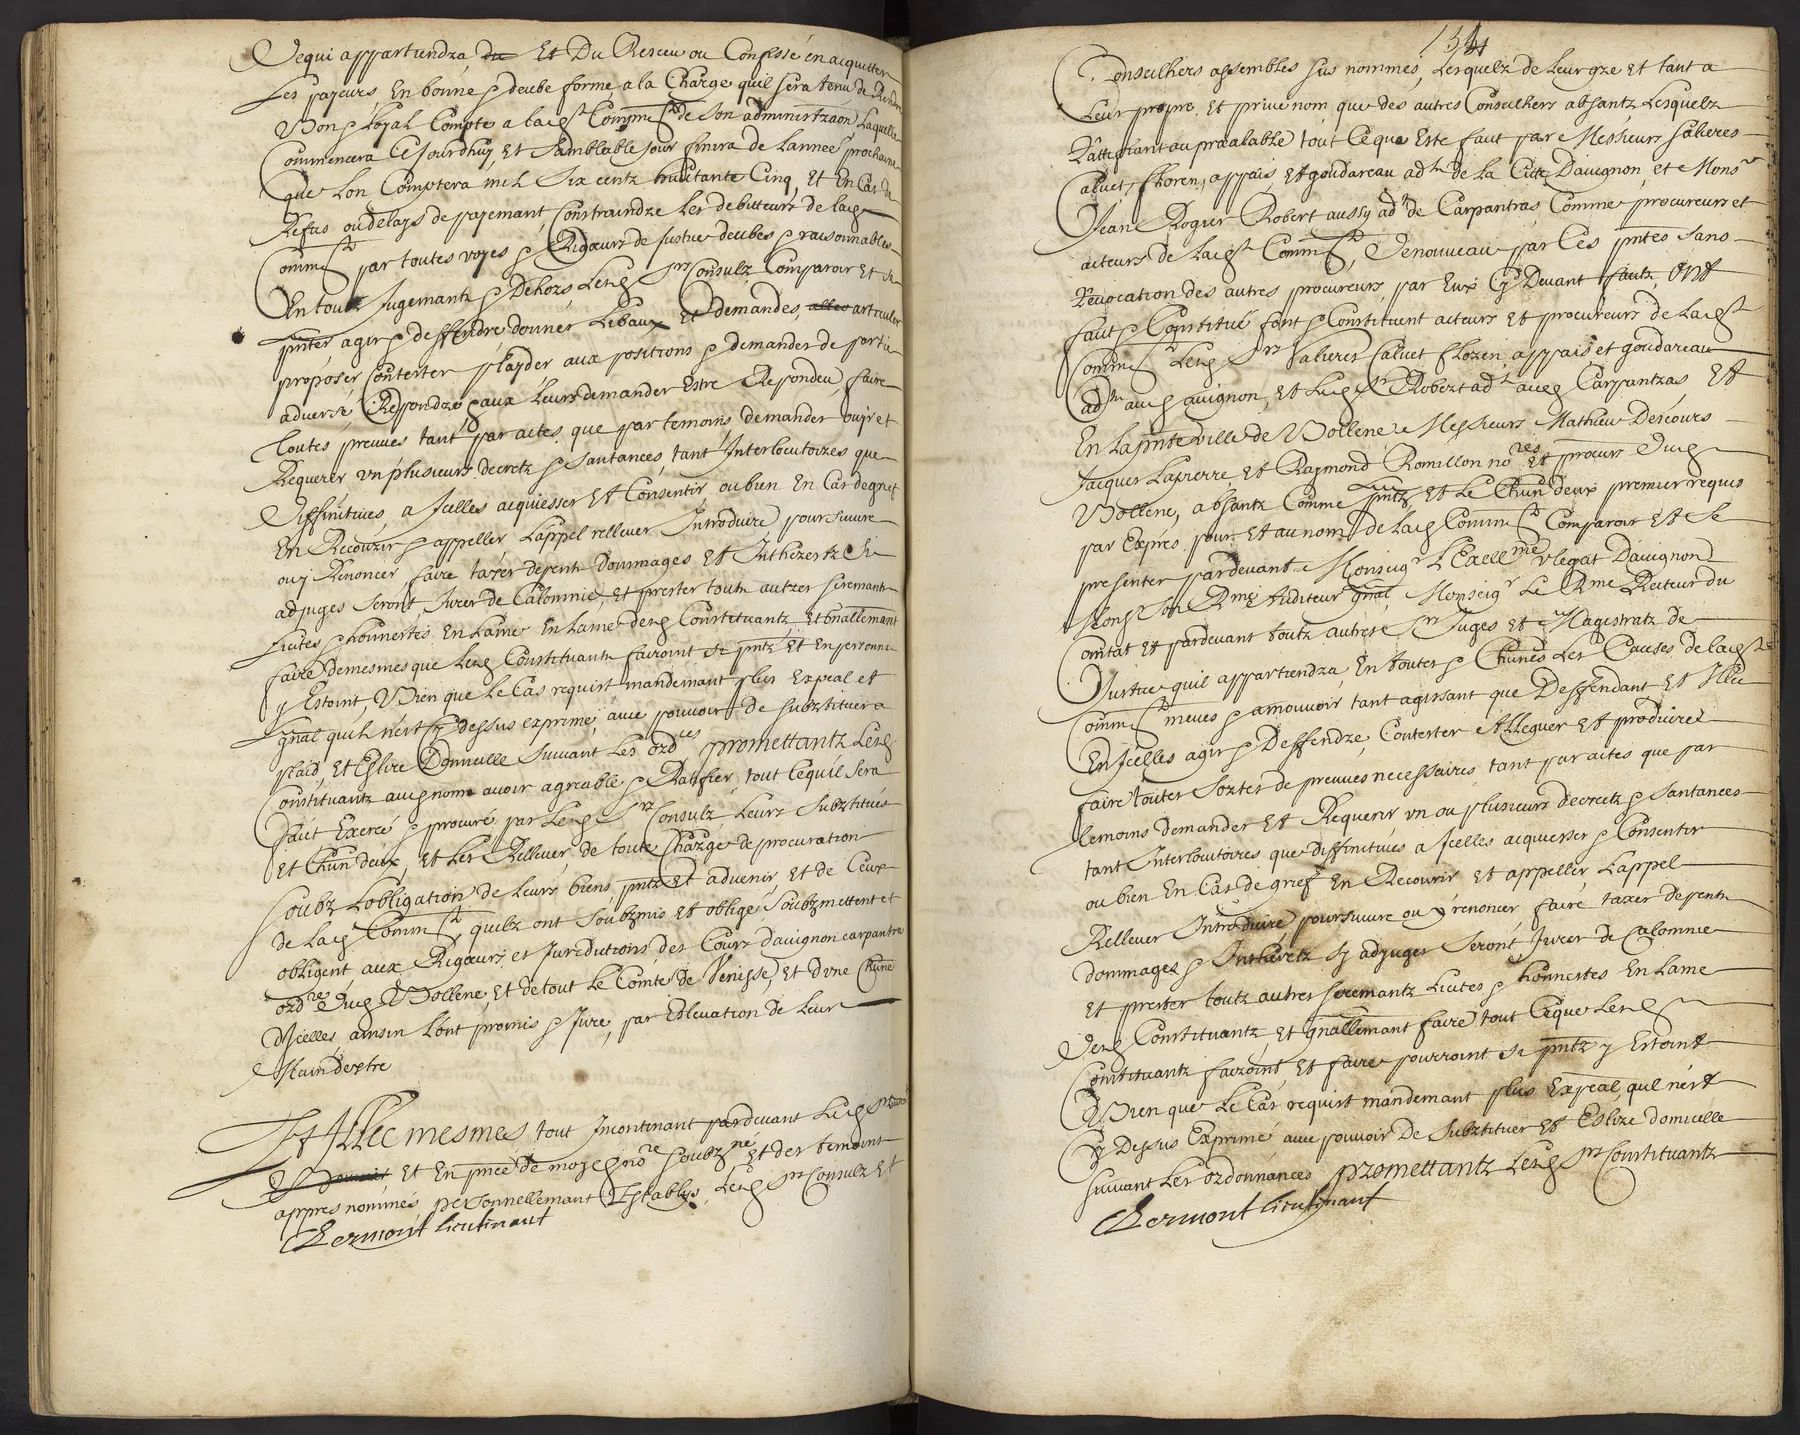 De qui appartiendra, du Et Du Resceu ou Confessé en acquitter
Les payeurs, En bonne & deube forme, a la Charge quil sera tenu de Rendre
Bon & Loyal Compte a lad. Commté de Son administraôn Laquelle
Commencera Cejourdhuy, Et Samblable Jour finira de Lannée prochaine
Que Lon Comptera mil Six centz huictante Cinq, Et En Cas de
Reffus ou delays de payemant, Constraindre Les debitteurs de lad.
Commté par toutes voyes & Rigœurs de Justice deubes & raisonnables
En toutz Jugemantz & Dehors Lesd. Srs Consulz Comparoir Et se
pnter agir & deffendre, donner Libaux Et demandes, alles articuler
proposer Contester playder aux positions & demandes de partie
adverse Respondre & aux Leurs demander Estre Respondeu, faire
toutes preuves tant par actes que par temoins, demander, ouyr et
Requerir vn plusieurs decretz & Santances, tant Interlocutoires que
Diffinitives, a Icelles acquiesser Et Consentir, ou bien En Cas de grief
En Recourir & appeller Lappel rellever Introduire poursuivre
ou y Renoncer, faire taxer despens Dommages Et Intherestz Si
adjuges Seront, Jurer de Calomnie, Et prester toutz autres seremantz
Licites & honnestes En Lame En Lame desd. Constituantz, Et gnallemant
faire de mesmes que Lesd. Constituantz fairoint si pntz Et En personne
y Estoint, Bien que Le Cas requist mandemant plus Expeal et
gnal quil nest Cy dessus exprimé, avec pouvoir de substituer a
plaid, Et Eslire Domicille Suivant Les ordces promettantz Lesd.
Constituantz aud. nom avoir agreable & Ratifier, tout Cequil Sera
faict Exercé & procuré par Lesd. Srs Consulz Leurs Substitués
Et Chûn deux, Et Les Rellever de toute Charge de procuration
Soubz Lobligation de Leurs biens pntz Et advenir, Et de Ceux
de Lad. Commté quilz ont Soubzmis Et obligé, Soubzmettent et
obligent, aux Rigœurs et Juridictions des Cours davignon carpantras
ordres dud. Bollene, Et de tout Le Comté de Venisse, Et dvne Chûne
dIcelles, ainsin Lont promis & Juré, par Eslevation de Leur
Main dextre
Et Illec mesmes tout Incontinant pardevant Led. Sr
Et En pnce de moyd. nore Soubzné Et des temoins
appres nommés personnellemant Establys, Lesd. Srs Consulz Et
Bermont lieutinant
Conseilhers assembles sus nommés, Lesquelz de Leur gre Et tant a
Leur propre Et privé nom que des autres Conseilhers absantz Lesquelz
Ratiffiant au praalable tout Ceque Este faict par Messieurs Salieres
Calvet, floren, appais, Et goudareau adts de la Citte Davignon, et Monsr
Jean Rogier Robert aussy adt de Carpantras Comme procureurs et
acteurs de Lad. Commté, De nouveau par Ces pntes Sans
Revocation des autres procureurs par Eux Cy Devant faictz, ont
faict & Constitué font & Constituent acteurs Et procureurs de Lad.
Commté Lesd. Srs Salieres Calvet floren, appais et goudareau
adts aud. avignon, et Led. Sr Robert adt aud. Carpantras, Et
En La pnte ville de Bollene Messieurs Mathieu Descours
Jacques Lapierre, et Raymond Romillon nores Et procurs Dud.
Bollene, absantz Comme pntz, Et Le Chûn deux premier requis
par Exprés pour Et au nom de Lad. Commté Comparoir Et Se
presenter pardevant Monseigr L'Excellme vlegat Davignon
Monsr Son Rme Auditeur gnal, Monseigr Le Rme Recteur du
Comtat Et pardevant toutz autres Srs Juges Et Magistratz de
Justice quil appartiendra, En toutes & Chunes Les Causes de lad.
Commté meues & a mouvoir tant agissant que Deffendant Et Illec
En Icelles agir & Deffendre, Contester Alleguer Et produire
faire toutes Sortes de preuves necessaires tant par actes que par
temoins demander Et Requerir vn ou plusieurs decretz & Santances
tant Interlocutoires que diffinitives a Icelles acquiesser & Consentir
ou bien En Cas de grief En Recourir Et appeller Lappel
Rellever Introduire poursuivre ou y renoncer, faire taxer despens
dommages & Intheretz sy adjuges Seront, Jurer de Calomnie
Et prester toutz autres seremantz Licites & honnestes En Lame
Desd. Constituantz, Et gnallemant faire tout Ceque Lesd.
Constituantz fairoint Et faire pourroint si pntz y Estoint
Bien que Le Cas requist mandemant plus Expeal, quil nest
Cy Dessus Exprimé avec pouvoir De Substituer Et Eslire domicille
Suivant Les ordonnances promettantz Lesd. Srs Constituantz
Bermont lieutinant